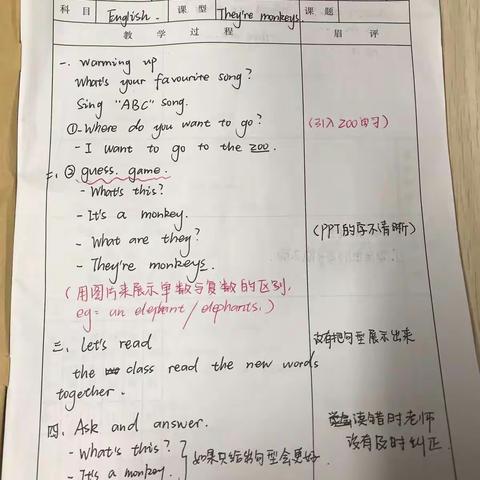 科目 English. 课型 They're monkeys 课题
教学过程 眉评
一. warming up
What's your favourite song?
Sing "ABC" song.
①-Where do you want to go?
- I want to go to the zoo. (引入zoo的习)
二. ② guess. game.
- What's this?
- It's a monkey.
- What are they? (PPT的字不清晰)
- They're monkeys.
(用图片来展示单数与复数的区别.
eg= an elephant / elephants.)
三. Let's read 没有把句型展示出来
the class read the new words
together.
四. Ask and answer. 读错时老师
没有及时纠正.
- What's this?
- It's a monkey. 如果只给出句型会更好.